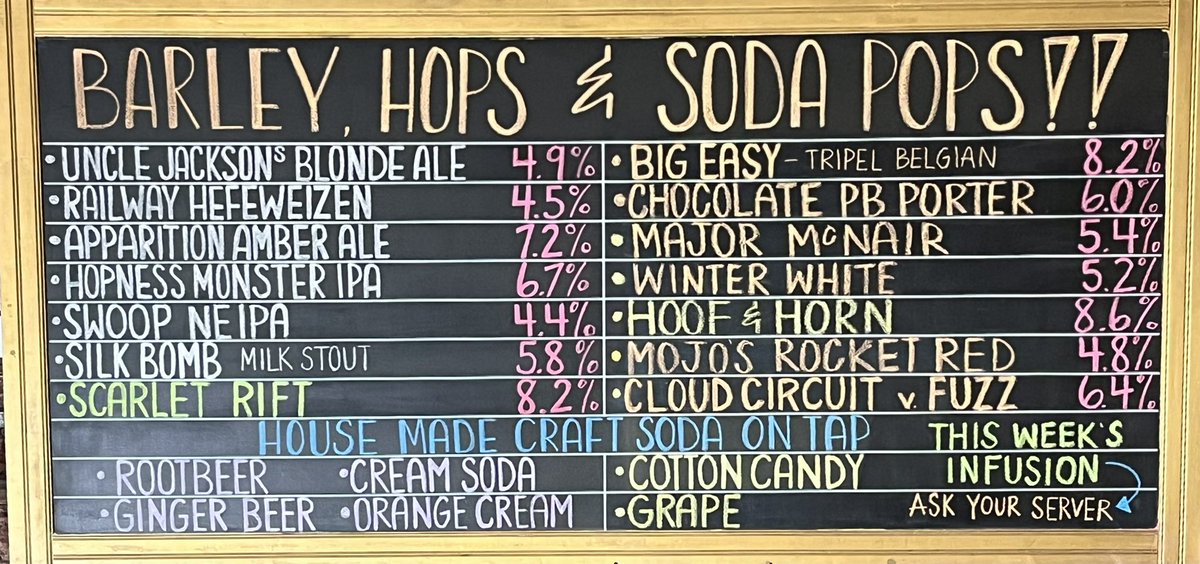 BARLEY, HOPS & SODA POPS!!
• UNCLE JACKSONS BLONDE ALE 4.9%
• RAILWAY HEFEWEIZEN 4.5%
• APPARITION AMBER ALE 7.2%
• HOPNESS MONSTER IPA 6.7%
• SWOOP NEIPA 4.4%
• SILK BOMB MILK STOUT 5.8%
• SCARLET RIFT 8.2%
• BIG EASY - TRIPEL BELGIAN 8.2%
• CHOCOLATE PB PORTER 6.0%
• MAJOR McNAIR 5.4%
• WINTER WHITE 5.2%
• HOOF & HORN 8.6%
• MOJO'S ROCKET RED 4.8%
• CLOUD CIRCUIT v. FUZZ 6.4%
HOUSE MADE CRAFT SODA ON TAP
• ROOTBEER • CREAM SODA
• GINGER BEER • ORANGE CREAM
• COTTON CANDY
• GRAPE
THIS WEEK'S
INFUSION
ASK YOUR SERVER